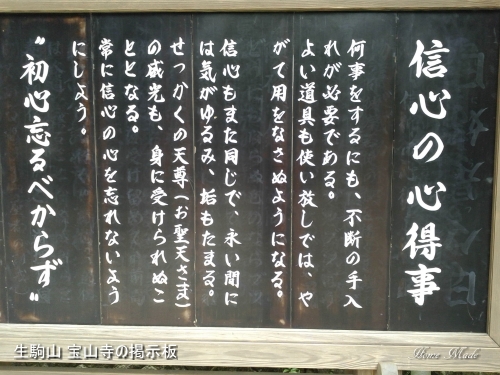 信心の心得事
何事をするにも、不断の手入
れが必要である。
よい道具も使い放しでは、や
がて用をなさぬようになる。
信心もまた同じで、永い間に
は気がゆるみ、垢もたまる。
せっかくの天尊(お聖天さま)
の威光も、身に受けられぬこ
ととなる。
常に信心の心を忘れないよう
にしよう。
〝初心忘るべからず〟
生駒山 宝山寺の掲示板
Home Made